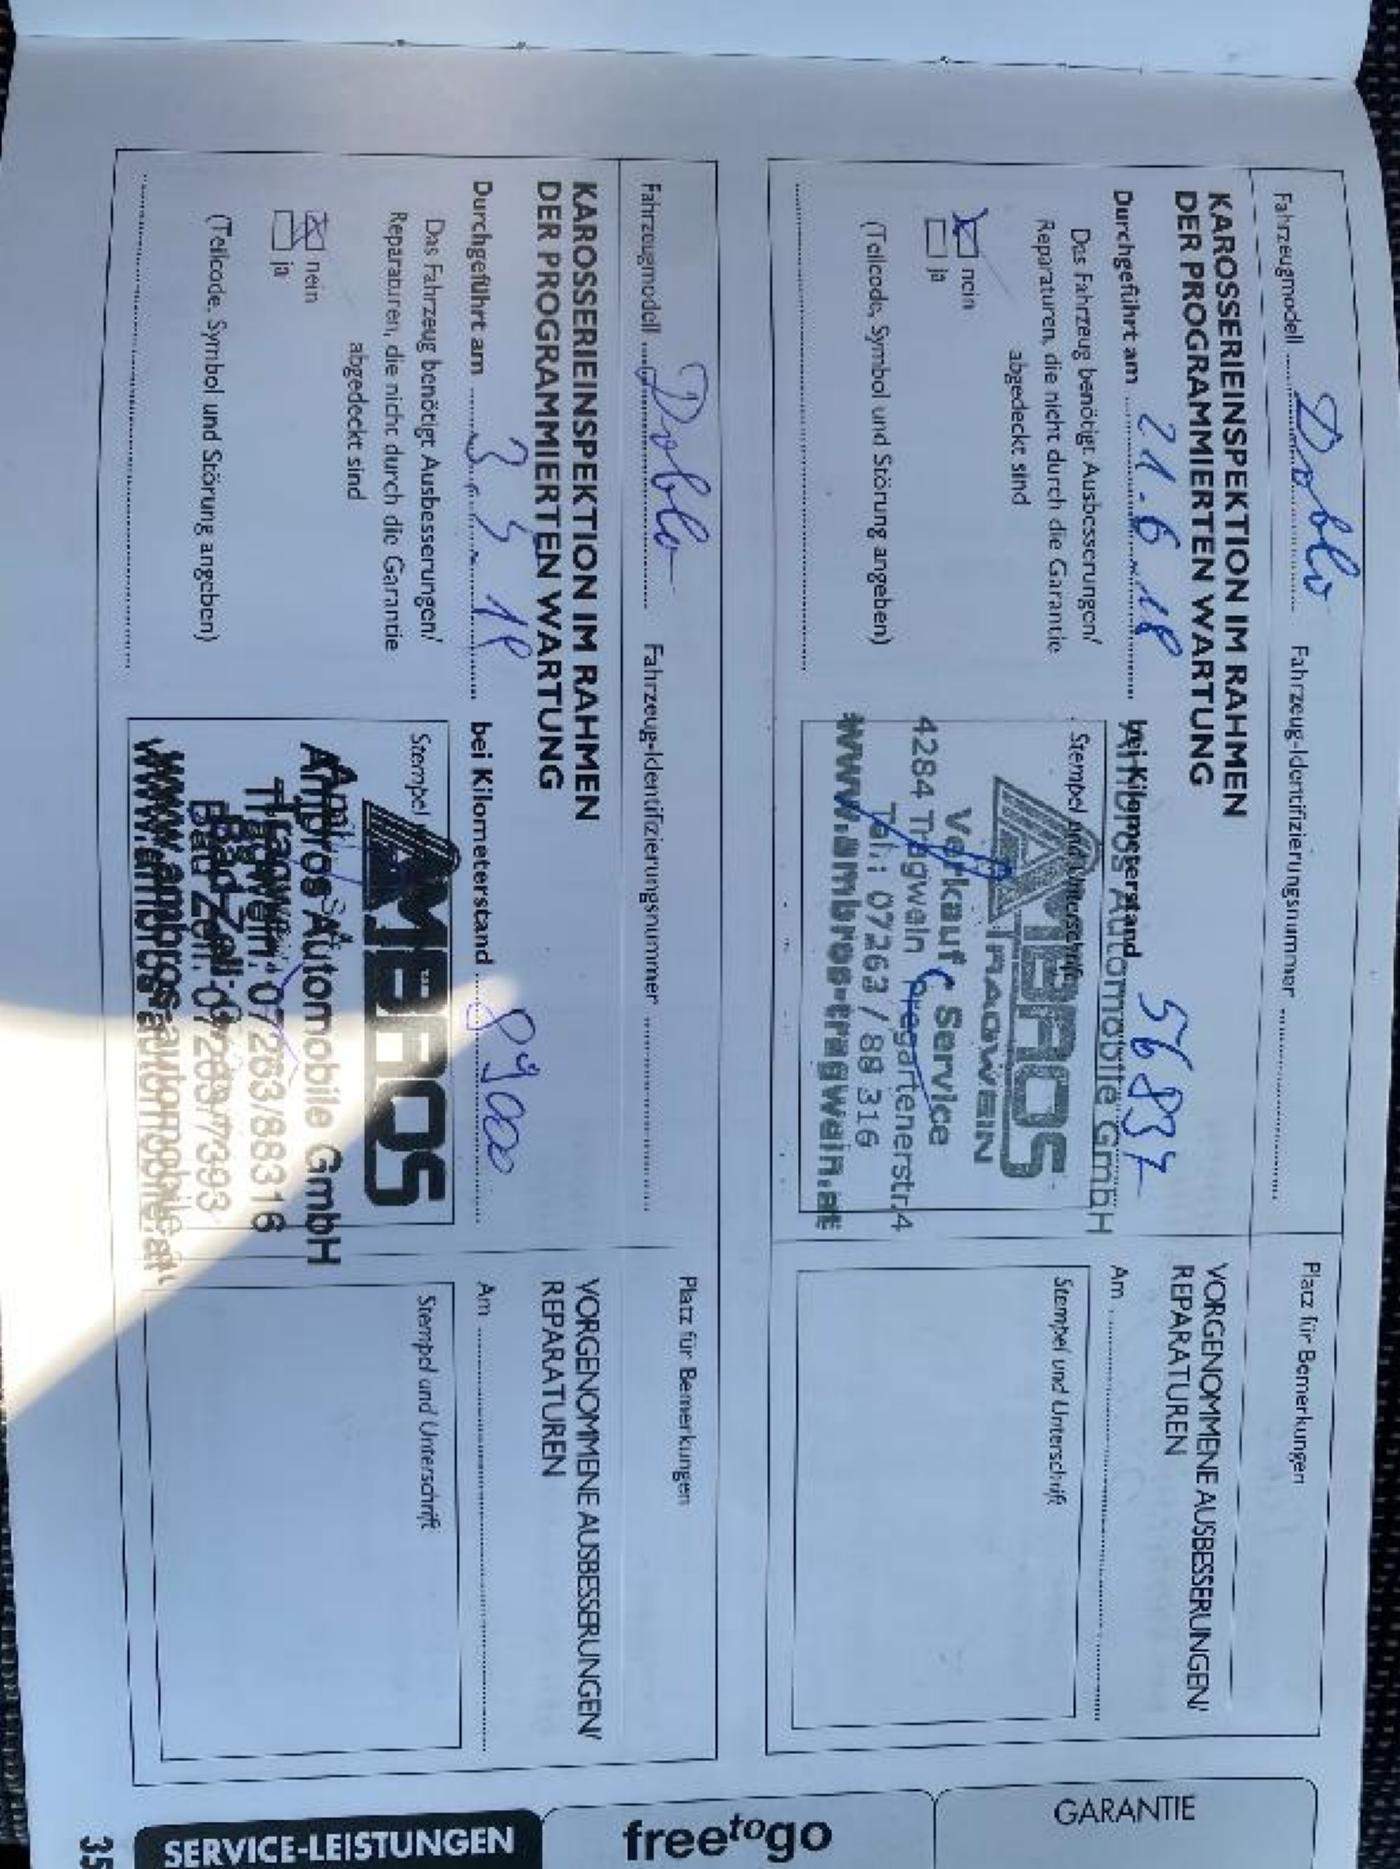 Fahrzeugmodell Doblo Fahrzeug-Identifizierungsnummer
Platz für Bemerkungen
KAROSSERIEINSPEKTION IM RAHMEN
DER PROGRAMMIERTEN WARTUNG
Durchgeführt am 21.6.18 bei Kilometerstand 56837
Das Fahrzeug benötigt Ausbesserungen/
Reparaturen, die nicht durch die Garantie
abgedeckt sind
nein
ja
(Teilcode, Symbol und Störung angeben)
Stempel und Unterschrift
Ambros Automobile GmbH
AMBROS
TRAGWEIN
Verkauf Service
4284 Tragwein Pregartenerstr.4
Tel.: 07263/88 316
www.ambros-tragwein.at
VORGENOMMENE AUSBESSERUNGEN/
REPARATUREN
Am
Stempel und Unterschrift
Fahrzeugmodell Doblo Fahrzeug-Identifizierungsnummer
Platz für Bemerkungen
KAROSSERIEINSPEKTION IM RAHMEN
DER PROGRAMMIERTEN WARTUNG
Durchgeführt am 3.5. bei Kilometerstand 89000
Das Fahrzeug benötigt Ausbesserungen/
Reparaturen, die nicht durch die Garantie
abgedeckt sind
nein
ja
(Teilcode, Symbol und Störung angeben)
Stempel
AMBROS
Ambros Automobile GmbH
Tragwein: 07263/88316
Bad Zell: 07263/7393
www.ambros-automobile.at
VORGENOMMENE AUSBESSERUNGEN/
REPARATUREN
Am
Stempel und Unterschrift
GARANTIE
freetogo
SERVICE-LEISTUNGEN
35